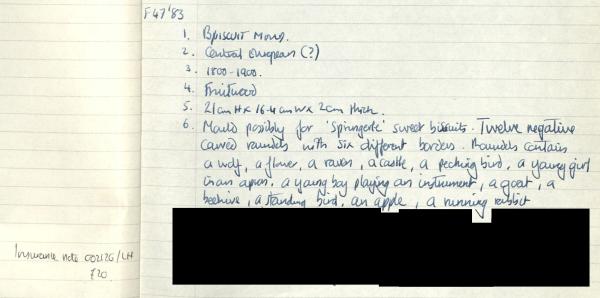 F47'83
1. Bpiscuit Mould.
2. Central European (?)
3. 1800-1900.
4. Fruitwood
5. 21cm H x 16.4cm W x 2cm thick.
6. Mould possibly for 'Springerle' sweet biscuits. Twelve negative
carved roundels with six different borders. Roundels contain
a wolf, a flower, a raven, a castle, a pecking bird, a young girl
in an apron, a young boy playing an instrument, a goat, a
beehive, a standing bird, an apple, a running rabbit
Insurance note 002126/LH
£20.